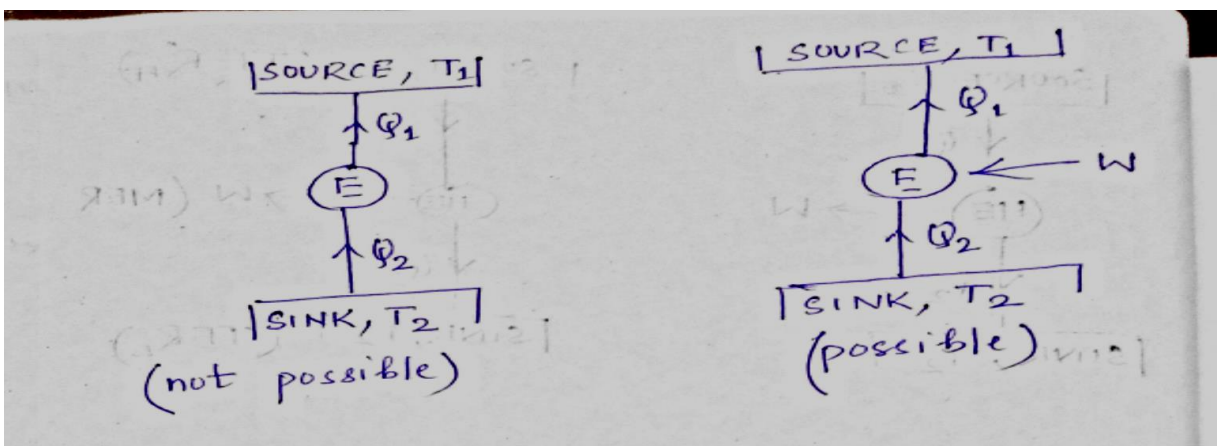 SOURCE, T1
Q1
E
Q2
SINK, T2
(not possible)
SOURCE, T1
Q1
E
W
Q2
SINK, T2
(possible)